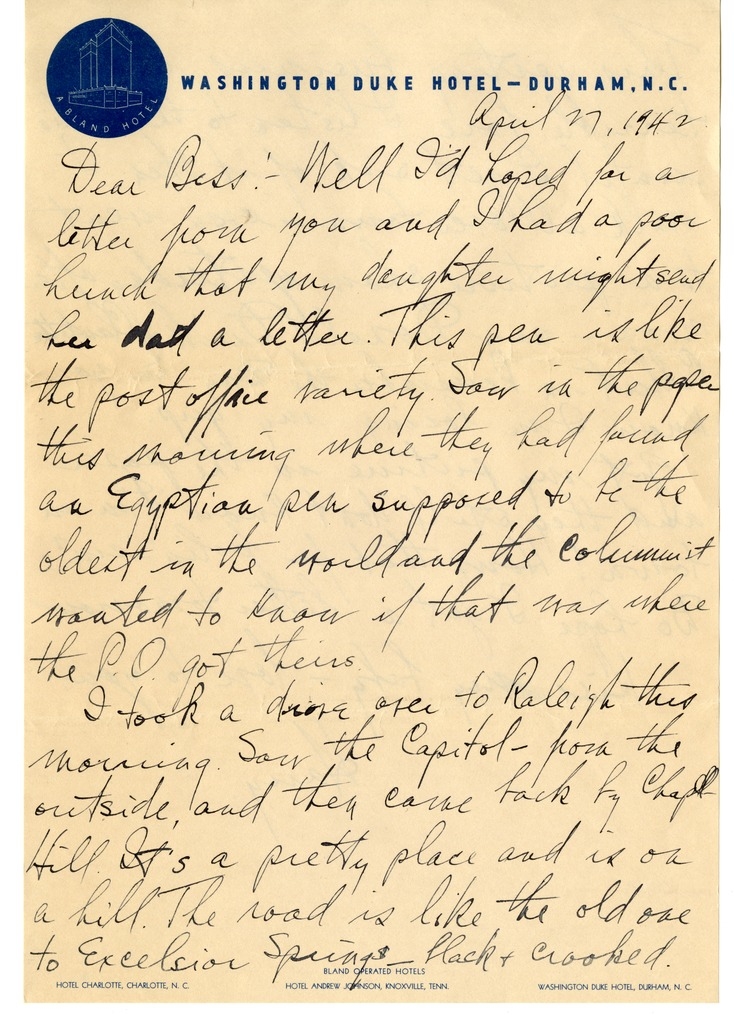 A BLAND HOTEL
WASHINGTON DUKE HOTEL—DURHAM, N.C.
April 27, 1942
Dear Bess:- Well I'd hoped for a
letter from you and I had a poor
hunch that my daughter might send
her dad a letter. This pen is like
the post office variety. Saw in the paper
this morning where they had found
an Egyptian pen supposed to be the
oldest in the world and the columnist
wanted to know if that was where
the P.O. got theirs.
I took a drive over to Raleigh this
morning. Saw the Capitol - from the
outside, and then came back by Chapel
Hill. It's a pretty place and is on
a hill. The road is like the old one
to Excelsior Springs - black & crooked.
BLAND OPERATED HOTELS
HOTEL CHARLOTTE, CHARLOTTE, N. C. HOTEL ANDREW JOHNSON, KNOXVILLE, TENN. WASHINGTON DUKE HOTEL, DURHAM, N. C.